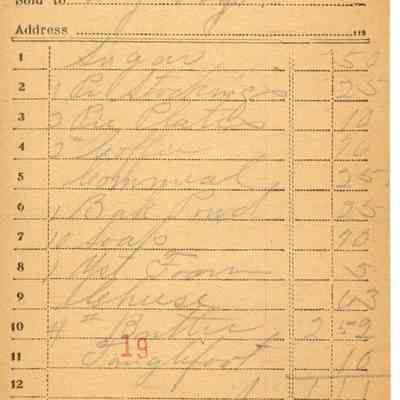 Sold to
Address
1 Sugar 50
2 1 Pr Stockings 25
3 2 Pie Plates 10
4 2# Coffee 70
5 Cornmeal 25
6 1 Bak Powd 25
7 10 Soap 90
8 1 Yst Foam 5
9 Cheese 63
10 4# Butter 2 52
11 Tanglefoot 10
19
12